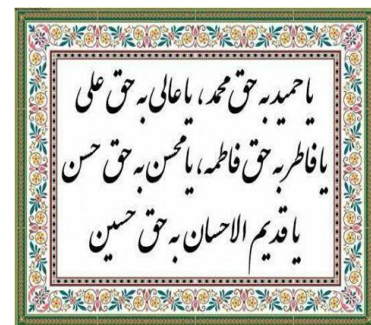 یا حمید به حق محمد، یا عالی به حق علی
یا فاطر به حق فاطمه، یا محسن به حق حسن
یا قدیم الاحسان به حق حسین